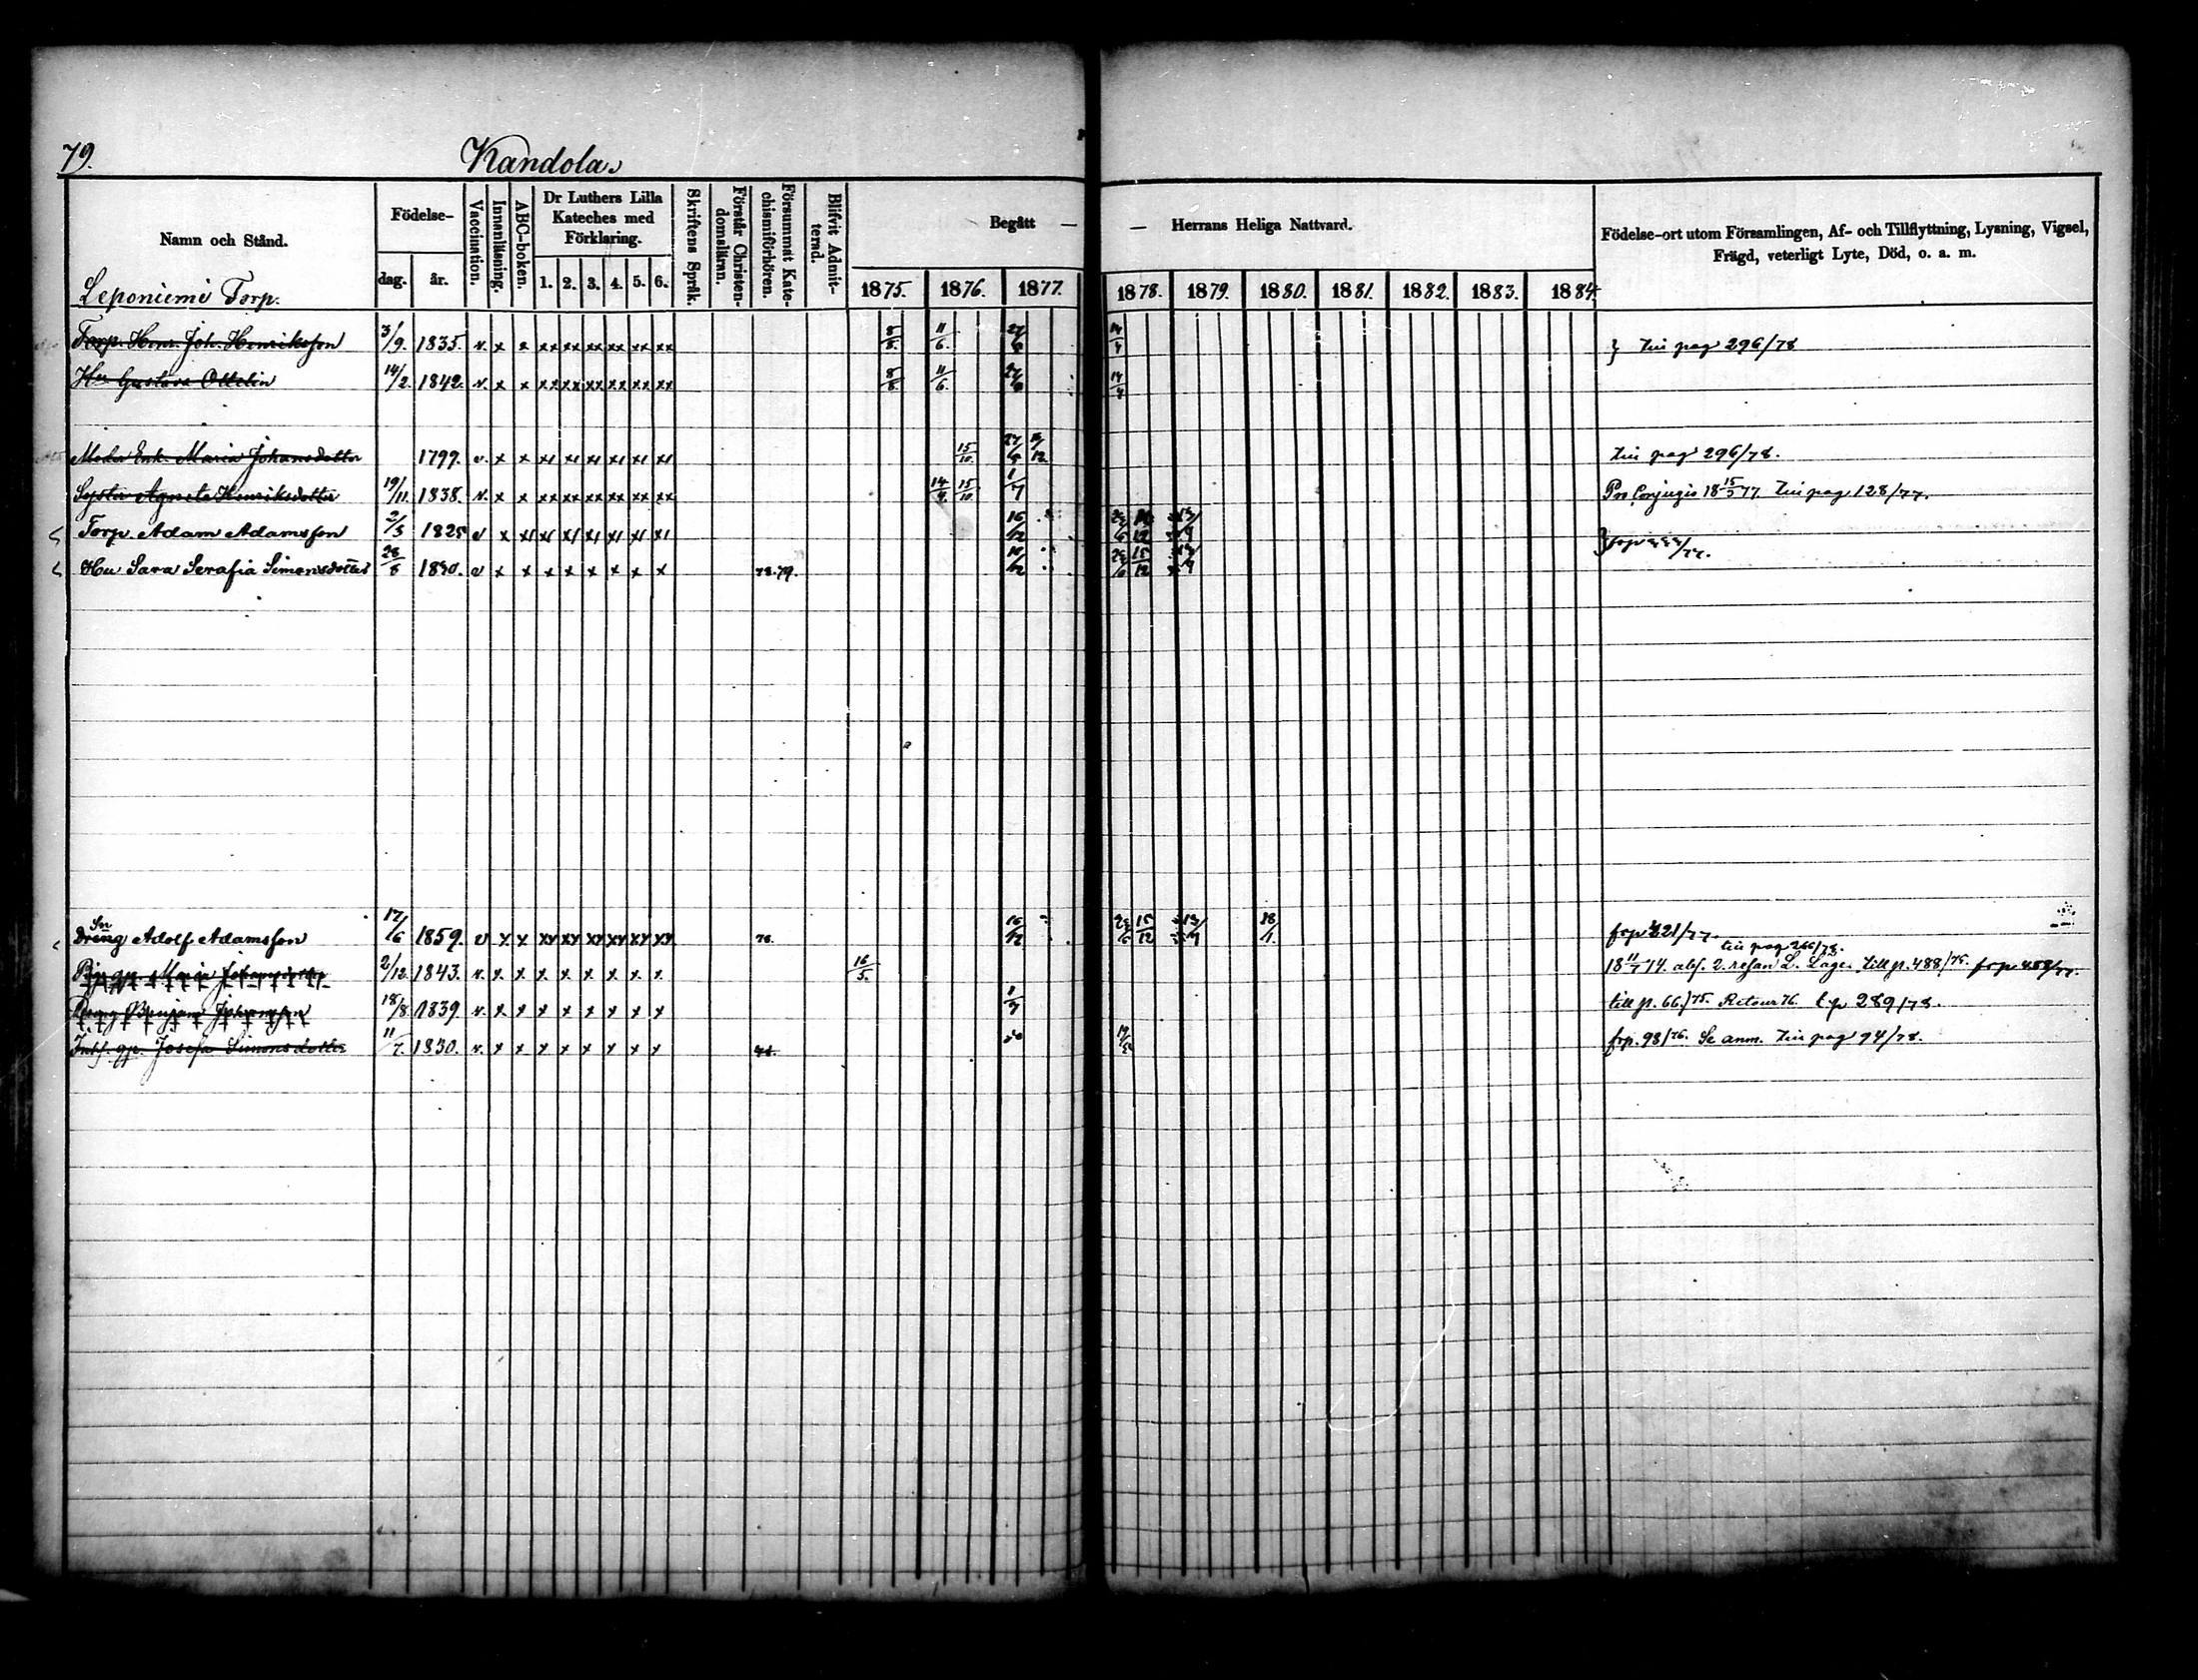 79.
Kandola.
Namn och Stånd.
Födelse-
dag.
år.
Vaccination.
Innanläsning.
ABC-boken.
Dr Luthers Lilla
Kateches med
Förklaring.
1. 2. 3. 4. 5. 6.
Skriftens Språk.
Förstår Christen-
domsläran.
Försummat Kate-
chismiförhören.
Blifvit Admit-
terad.
Begått — — Herrans Heliga Nattvard.
1875. 1876. 1877. 1878. 1879. 1880. 1881. 1882. 1883. 1884
Födelse-ort utom Församlingen, Af- och Tillflyttning, Lysning, Vigsel,
Frägd, veterligt Lyte, Död, o. a. m.
Leponiemi Torp.
Torp. Henr. Joh. Henriksson 3/9. 1835. v. x x xx xx xx xx xx xx 8/8. 11/6. } pag 296/78
Hu Gustava Ottelin 14/2. 1842. v. x x xx xx xx xx xx xx 8/8. 11/6.
Moder Enk. Maria Johansdotter 1799. v. x x 15/10. pag 296/78.
Syster Agneta Henriksdotter 19/11. 1838. v. x x xx xx xx xx xx xx 14/9 15/10 1/7 Pro Conjugio 18 15/5 77. pag 128/77.
Torp. Adam Adamsson 2/3 1825 v x 16/12
Hu Sara Serafia Simonsdotter 28/8 1830. v x x x x x x x x 78. 79.
Son
Dräng Adolf Adamsson 17/6 1859. v x x 76. 16/12 15/12 18/1. frp 221/77.
pag 266/78.
Maria Johansdotter 2/12. 1843. v. x x x x x x x x 16/5. 18 11/7 74. abs. 2. resan L. Läge. till p. 488/75. frp 458/77.
Benjam Johansson 18/8. 1839 v. x x x x x x x x 1/7 till p. 66./75. Retour 76. t. p 289/78.
Inhs. gp. Josefa Simonsdotter 11/7. 1830. v. x x x x x x x x frp. 98/76. Se anm. pag 94/78.